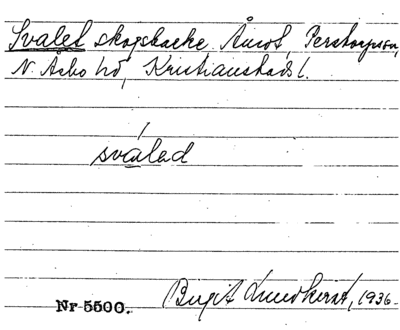 Svalet skogsbacke, Århot, Perstorps sn,
N. Åsbo hd, Kristianstads l.
svalad
Nr 5500. Birgit Lundkvist, 1936.